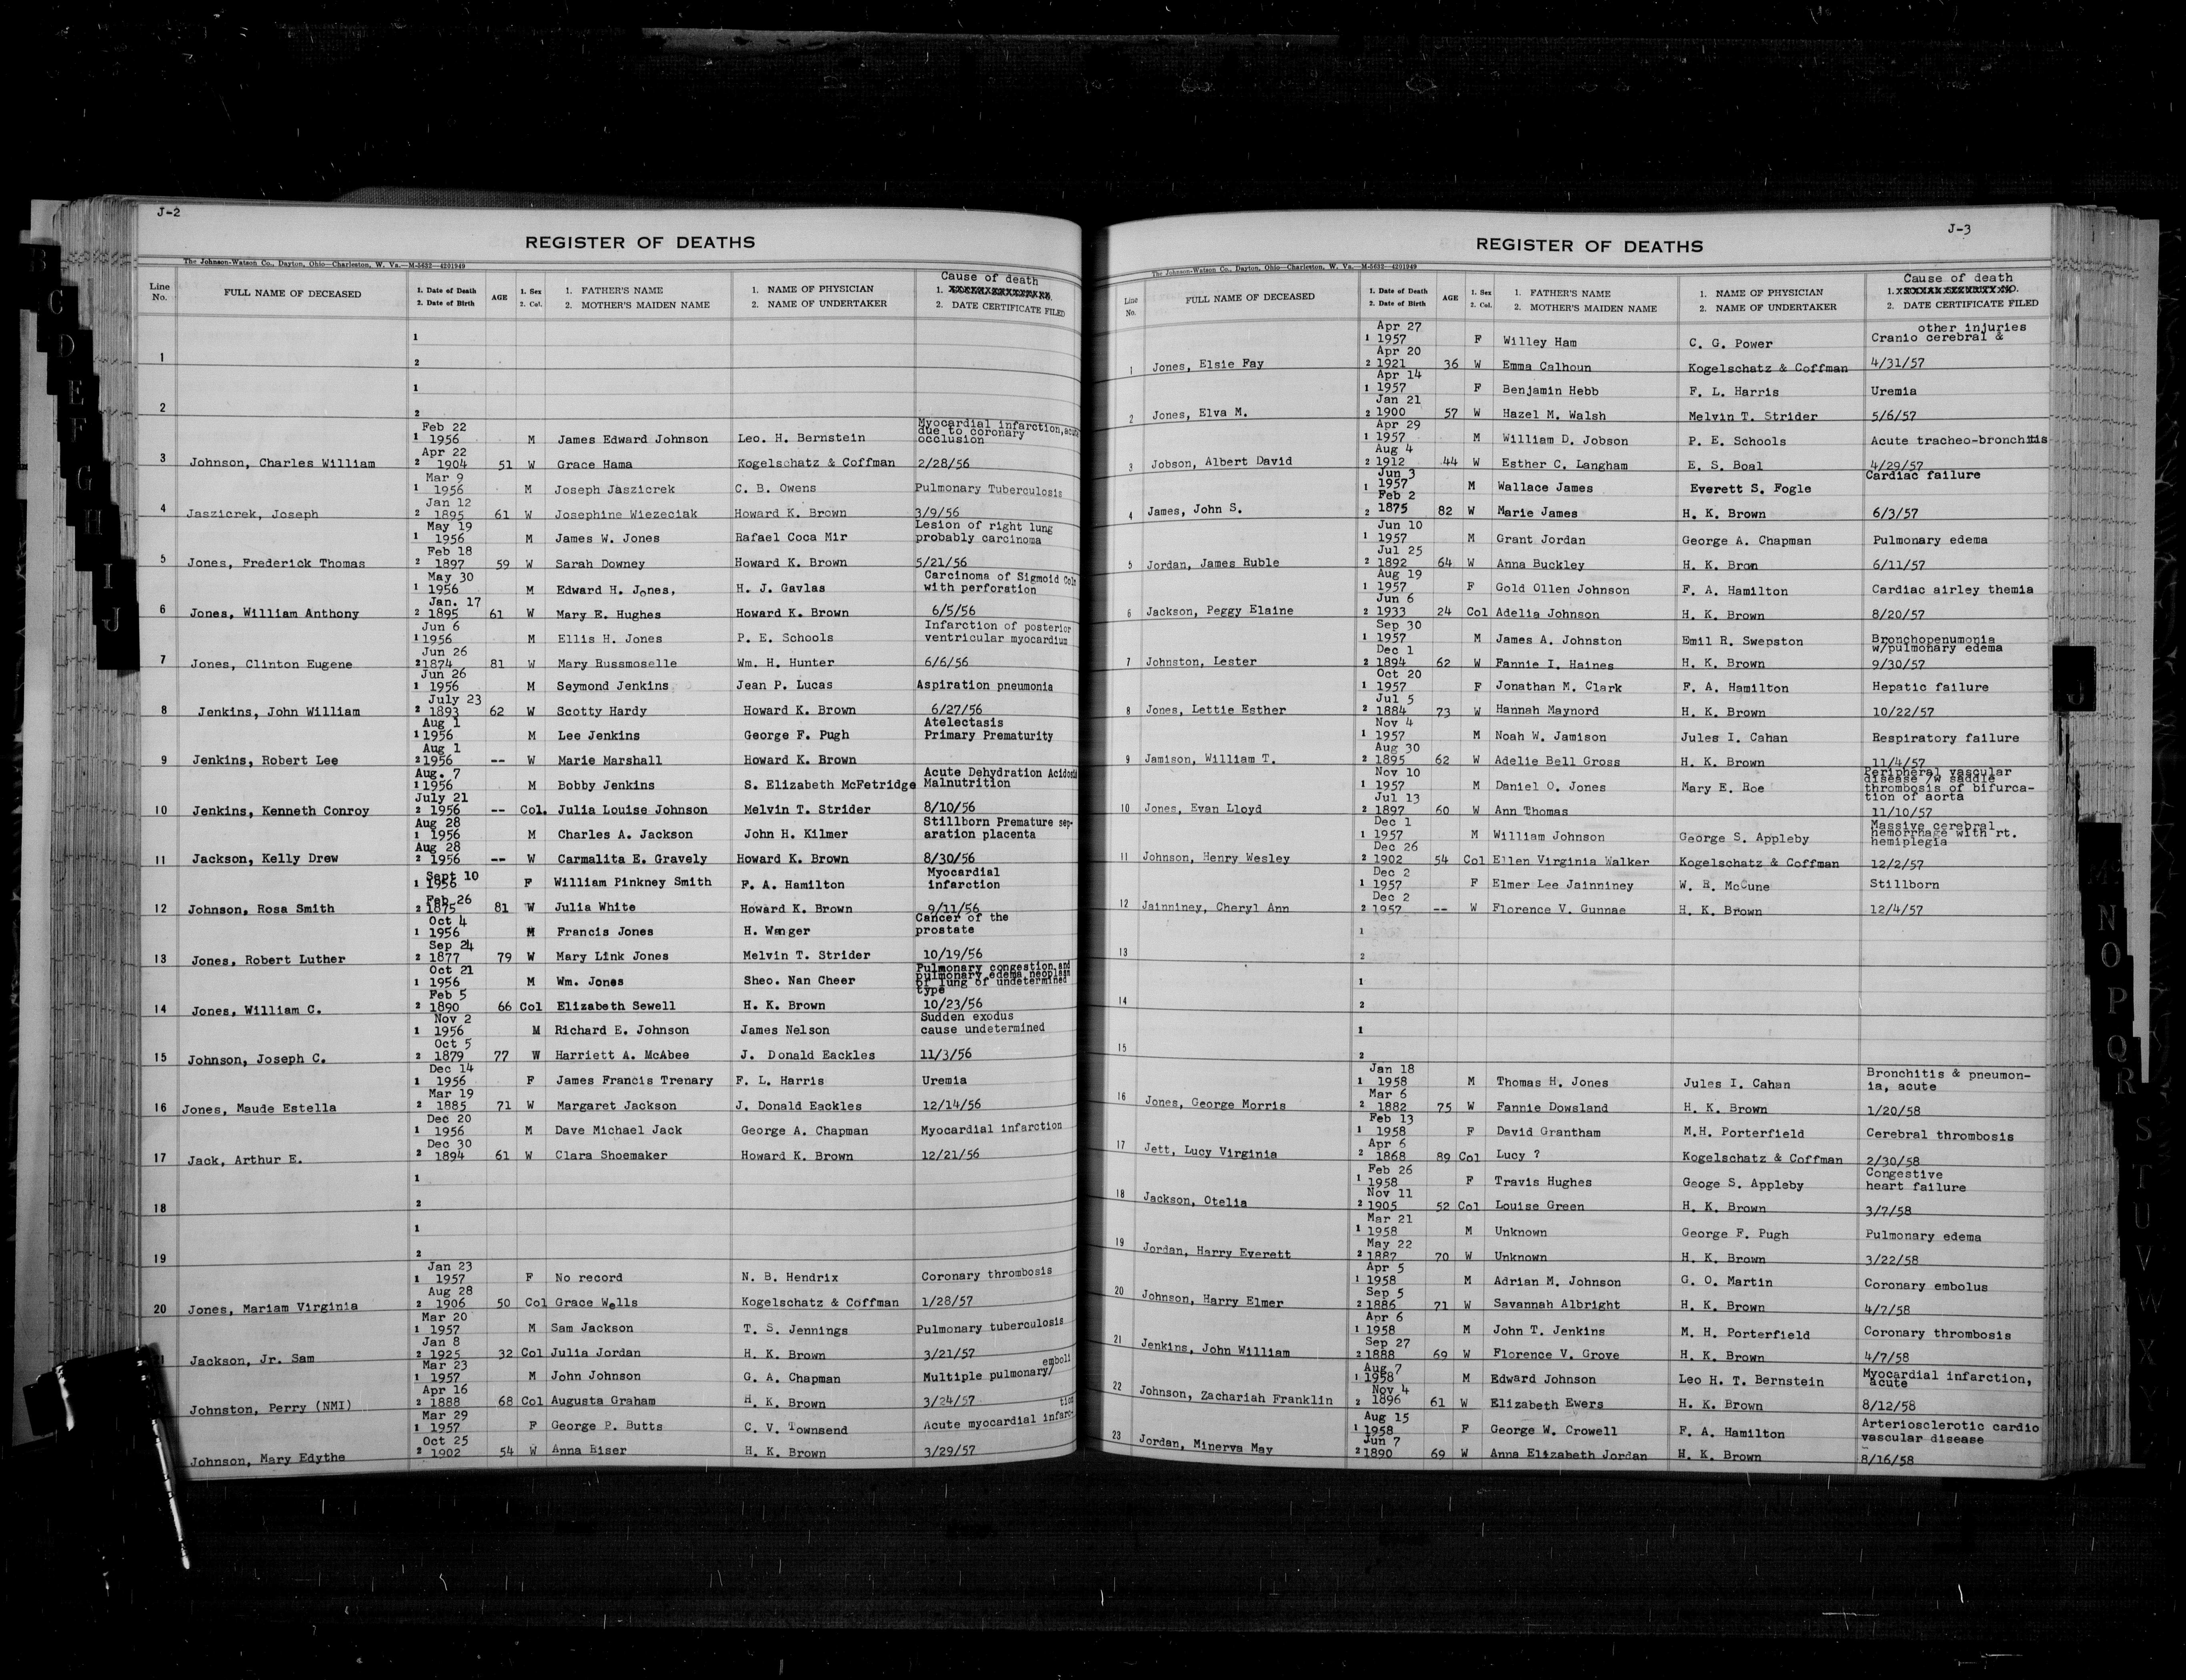 J-2
REGISTER OF DEATHS
The Johnson-Watson Co., Dayton, Ohio—Charleston, W. Va.—M-5632—4201949
Line No. FULL NAME OF DECEASED 1. Date of Death 2. Date of Birth AGE 1. Sex 2. Col. 1. FATHER'S NAME 2. MOTHER'S MAIDEN NAME 1. NAME OF PHYSICIAN 2. NAME OF UNDERTAKER Cause of death 1. 2. DATE CERTIFICATE FILED
1
1
2
1
2
2
Feb 22 Myocardial infarction, acute
1 1956 M James Edward Johnson Leo. H. Bernstein due to coronary occlusion
Apr 22
3 Johnson, Charles William 2 1904 51 W Grace Hama Kogelschatz & Coffman 2/28/56
Mar 9
1 1956 M Joseph Jaszicrek C. B. Owens Pulmonary Tuberculosis
Jan 12
4 Jaszicrek, Joseph 2 1895 61 W Josephine Wiezeciak Howard K. Brown 3/9/56
May 19 Lesion of right lung
1 1956 M James W. Jones Rafael Coca Mir probably carcinoma
Feb 18
5 Jones, Frederick Thomas 2 1897 59 W Sarah Downey Howard K. Brown 5/21/56
May 30 Carcinoma of Sigmoid Coln
1 1956 M Edward H. Jones, H. J. Gavlas with perforation
Jan. 17
6 Jones, William Anthony 2 1895 61 W Mary E. Hughes Howard K. Brown 6/5/56
Jun 6 Infarction of posterior
1 1956 M Ellis H. Jones P. E. Schools ventricular myocardium
Jun 26
7 Jones, Clinton Eugene 2 1874 81 W Mary Russmoselle Wm. H. Hunter 6/6/56
Jun 26
1 1956 M Seymond Jenkins Jean P. Lucas Aspiration pneumonia
July 23
8 Jenkins, John William 2 1893 62 W Scotty Hardy Howard K. Brown 6/27/56
Aug 1 Atelectasis
1 1956 M Lee Jenkins George F. Pugh Primary Prematurity
Aug 1
9 Jenkins, Robert Lee 2 1956 -- W Marie Marshall Howard K. Brown
Aug. 7 Acute Dehydration Acidosis
1 1956 M Bobby Jenkins S. Elizabeth McFetridge Malnutrition
July 21
10 Jenkins, Kenneth Conroy 2 1956 -- Col. Julia Louise Johnson Melvin T. Strider 8/10/56
Aug 28 Stillborn Premature sep-
1 1956 M Charles A. Jackson John H. Kilmer aration placenta
Aug 28
11 Jackson, Kelly Drew 2 1956 -- W Carmalita E. Gravely Howard K. Brown 8/30/56
Sept 10 Myocardial
1 1956 F William Pinkney Smith F. A. Hamilton infarction
Feb 26
12 Johnson, Rosa Smith 2 1875 81 W Julia White Howard K. Brown 9/11/56
Oct 4 Cancer of the
1 1956 M Francis Jones H. Wanger prostate
Sep 24
13 Jones, Robert Luther 2 1877 79 W Mary Link Jones Melvin T. Strider 10/19/56
Oct 21 Pulmonary congestion and pulmonary edema neoplasm
1 1956 M Wm. Jones Sheo. Nan Cheer of lung of undetermined type
Feb 5
14 Jones, William C. 2 1890 66 Col Elizabeth Sewell H. K. Brown 10/23/56
Nov 2 Sudden exodus
1 1956 M Richard E. Johnson James Nelson cause undetermined
Oct 5
15 Johnson, Joseph C. 2 1879 77 W Harriett A. McAbee J. Donald Eackles 11/3/56
Dec 14
1 1956 F James Francis Trenary F. L. Harris Uremia
Mar 19
16 Jones, Maude Estella 2 1885 71 W Margaret Jackson J. Donald Eackles 12/14/56
Dec 20
1 1956 M Dave Michael Jack George A. Chapman Myocardial infarction
Dec 30
17 Jack, Arthur E. 2 1894 61 W Clara Shoemaker Howard K. Brown 12/21/56
1
18 2
1
19 2
Jan 23
1 1957 F No record N. B. Hendrix Coronary thrombosis
Aug 28
20 Jones, Mariam Virginia 2 1906 50 Col Grace Wells Kogelschatz & Coffman 1/28/57
Mar 20
1 1957 M Sam Jackson T. S. Jennings Pulmonary tuberculosis
Jan 8
Jackson, Jr. Sam 2 1925 32 Col Julia Jordan H. K. Brown 3/21/57
Mar 23 emboli
1 1957 M John Johnson G. A. Chapman Multiple pulmonary/
Apr 16
Johnston, Perry (NMI) 2 1888 68 Col Augusta Graham H. K. Brown 3/24/57
Mar 29 tion
1 1957 F George P. Butts C. V. Townsend Acute myocardial infarc-
Oct 25
Johnson, Mary Edythe 2 1902 54 W Anna Biser H. K. Brown 3/29/57
J-3
REGISTER OF DEATHS
The Johnson-Watson Co., Dayton, Ohio—Charleston, W. Va.—M-5632—4201949
Line No. FULL NAME OF DECEASED 1. Date of Death 2. Date of Birth AGE 1. Sex 2. Col. 1. FATHER'S NAME 2. MOTHER'S MAIDEN NAME 1. NAME OF PHYSICIAN 2. NAME OF UNDERTAKER Cause of death 1. 2. DATE CERTIFICATE FILED
Apr 27 other injuries
1 1957 F Willey Ham C. G. Power Cranio cerebral &
Apr 20
1 Jones, Elsie Fay 2 1921 36 W Emma Calhoun Kogelschatz & Coffman 4/31/57
Apr 14
1 1957 F Benjamin Hebb F. L. Harris Uremia
Jan 21
2 Jones, Elva M. 2 1900 57 W Hazel M. Walsh Melvin T. Strider 5/6/57
Apr 29
1 1957 M William D. Jobson P. E. Schools Acute tracheo-bronchitis
Aug 4
3 Jobson, Albert David 2 1912 44 W Esther C. Langham E. S. Boal 4/29/57
Jun 3 Cardiac failure
1 1957 M Wallace James Everett S. Fogle
Feb 2
4 James, John S. 2 1875 82 W Marie James H. K. Brown 6/3/57
Jun 10
1 1957 M Grant Jordan George A. Chapman Pulmonary edema
Jul 25
5 Jordan, James Ruble 2 1892 64 W Anna Buckley H. K. Bron 6/11/57
Aug 19
1 1957 F Gold Ollen Johnson F. A. Hamilton Cardiac airley themia
Jun 6
6 Jackson, Peggy Elaine 2 1933 24 Col Adelia Johnson H. K. Brown 8/20/57
Sep 30
1 1957 M James A. Johnston Emil R. Swepston Bronchopenumonia
Dec 1 w/pulmonary edema
7 Johnston, Lester 2 1894 62 W Fannie I. Haines H. K. Brown 9/30/57
Oct 20
1 1957 F Jonathan M. Clark F. A. Hamilton Hepatic failure
Jul 5
8 Jones, Lettie Esther 2 1884 73 W Hannah Maynord H. K. Brown 10/22/57
Nov 4
1 1957 M Noah W. Jamison Jules I. Cahan Respiratory failure
Aug 30
9 Jamison, William T. 2 1895 62 W Adelie Bell Gross H. K. Brown 11/4/57
Nov 10 Peripheral vascular disease /w saddle
1 1957 M Daniel O. Jones Mary E. Roe thrombosis of bifurca-
Jul 13 tion of aorta
10 Jones, Evan Lloyd 2 1897 60 W Ann Thomas 11/10/57
Dec 1 Massive cerebral
1 1957 M William Johnson George S. Appleby hemorrhage with rt.
Dec 26 hemiplegia
11 Johnson, Henry Wesley 2 1902 54 Col Ellen Virginia Walker Kogelschatz & Coffman 12/2/57
Dec 2
1 1957 F Elmer Lee Jainniney W. R. McCune Stillborn
Dec 2
12 Jainniney, Cheryl Ann 2 1957 -- W Florence V. Gunnae H. K. Brown 12/4/57
1
13 2
1
14 2
1
15 2
Jan 18 Bronchitis & pneumon-
1 1958 M Thomas H. Jones Jules I. Cahan ia, acute
Mar 6
16 Jones, George Morris 2 1882 75 W Fannie Dowsland H. K. Brown 1/20/58
Feb 13
1 1958 F David Grantham M.H. Porterfield Cerebral thrombosis
Apr 6
17 Jett, Lucy Virginia 2 1868 89 Col Lucy ? Kogelschatz & Coffman 2/30/58
Feb 26 Congestive
1 1958 F Travis Hughes Geoge S. Appleby heart failure
Nov 11
18 Jackson, Otelia 2 1905 52 Col Louise Green H. K. Brown 3/7/58
Mar 21
1 1958 M Unknown George F. Pugh Pulmonary edema
May 22
19 Jordan, Harry Everett 2 1887 70 W Unknown H. K. Brown 3/22/58
Apr 5
1 1958 M Adrian M. Johnson G. O. Martin Coronary embolus
Sep 5
20 Johnson, Harry Elmer 2 1886 71 W Savannah Albright H. K. Brown 4/7/58
Apr 6
1 1958 M John T. Jenkins M. H. Porterfield Coronary thrombosis
Sep 27
21 Jenkins, John William 2 1888 69 W Florence V. Grove H. K. Brown 4/7/58
Aug 7 Myocardial infarction,
1 1958 M Edward Johnson Leo H. T. Bernstein acute
Nov 4
22 Johnson, Zachariah Franklin 2 1896 61 W Elizabeth Ewers H. K. Brown 8/12/58
Aug 15 Arteriosclerotic cardio
1 1958 F George W. Crowell F. A. Hamilton vascular disease
Jun 7
23 Jordan, Minerva May 2 1890 69 W Anna Elizabeth Jordan H. K. Brown 8/16/58
C
D
E
F
G
H
I
J
J
N
O
P
QR
S
T
U
V
W
X
Y